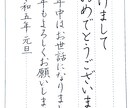 けまして
めでとうございます
年中はお世話になります
年もよろしくお願いします
令和五年 元旦